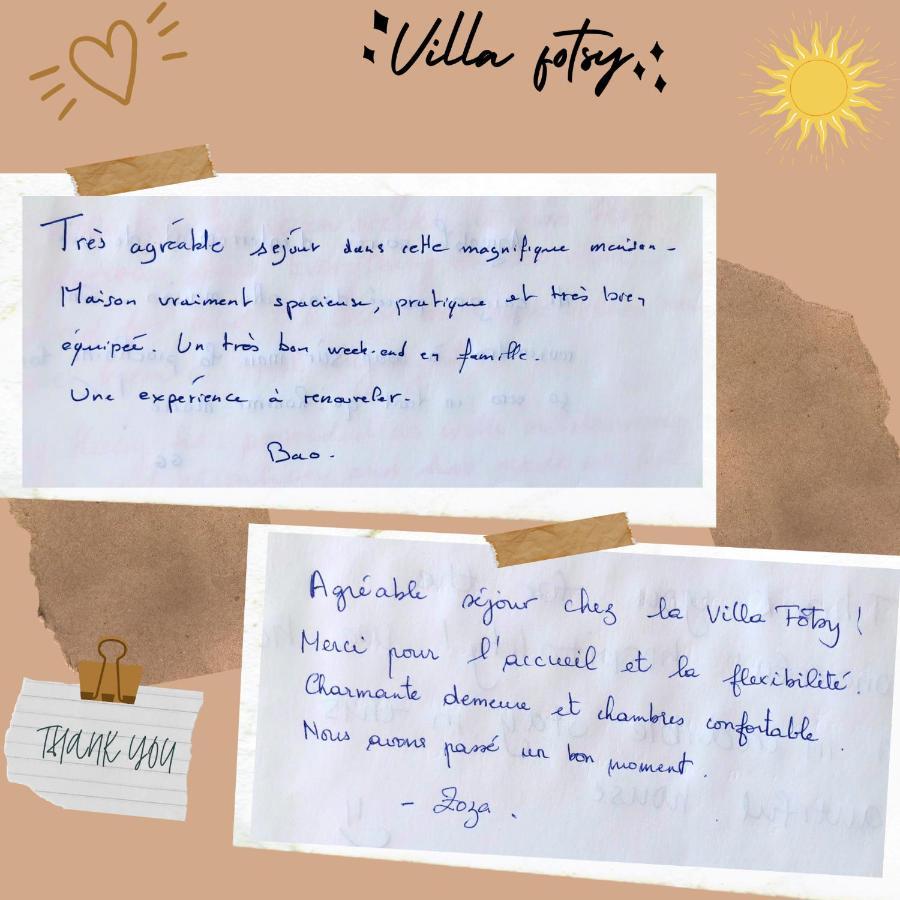 Villa fotsy
Très agréable séjour dans cette magnifique maison-
Maison vraiment spacieuse, pratique et très bien
équipée. Un très bon week-end en famille.
Une expérience à renouveler.
Bao.
Agréable séjour chez la Villa Fotsy !
Merci pour l'accueil et la flexibilité.
Charmante demeure et chambres confortable.
Nous avons passé un bon moment.
- Zoza.
THANK YOU